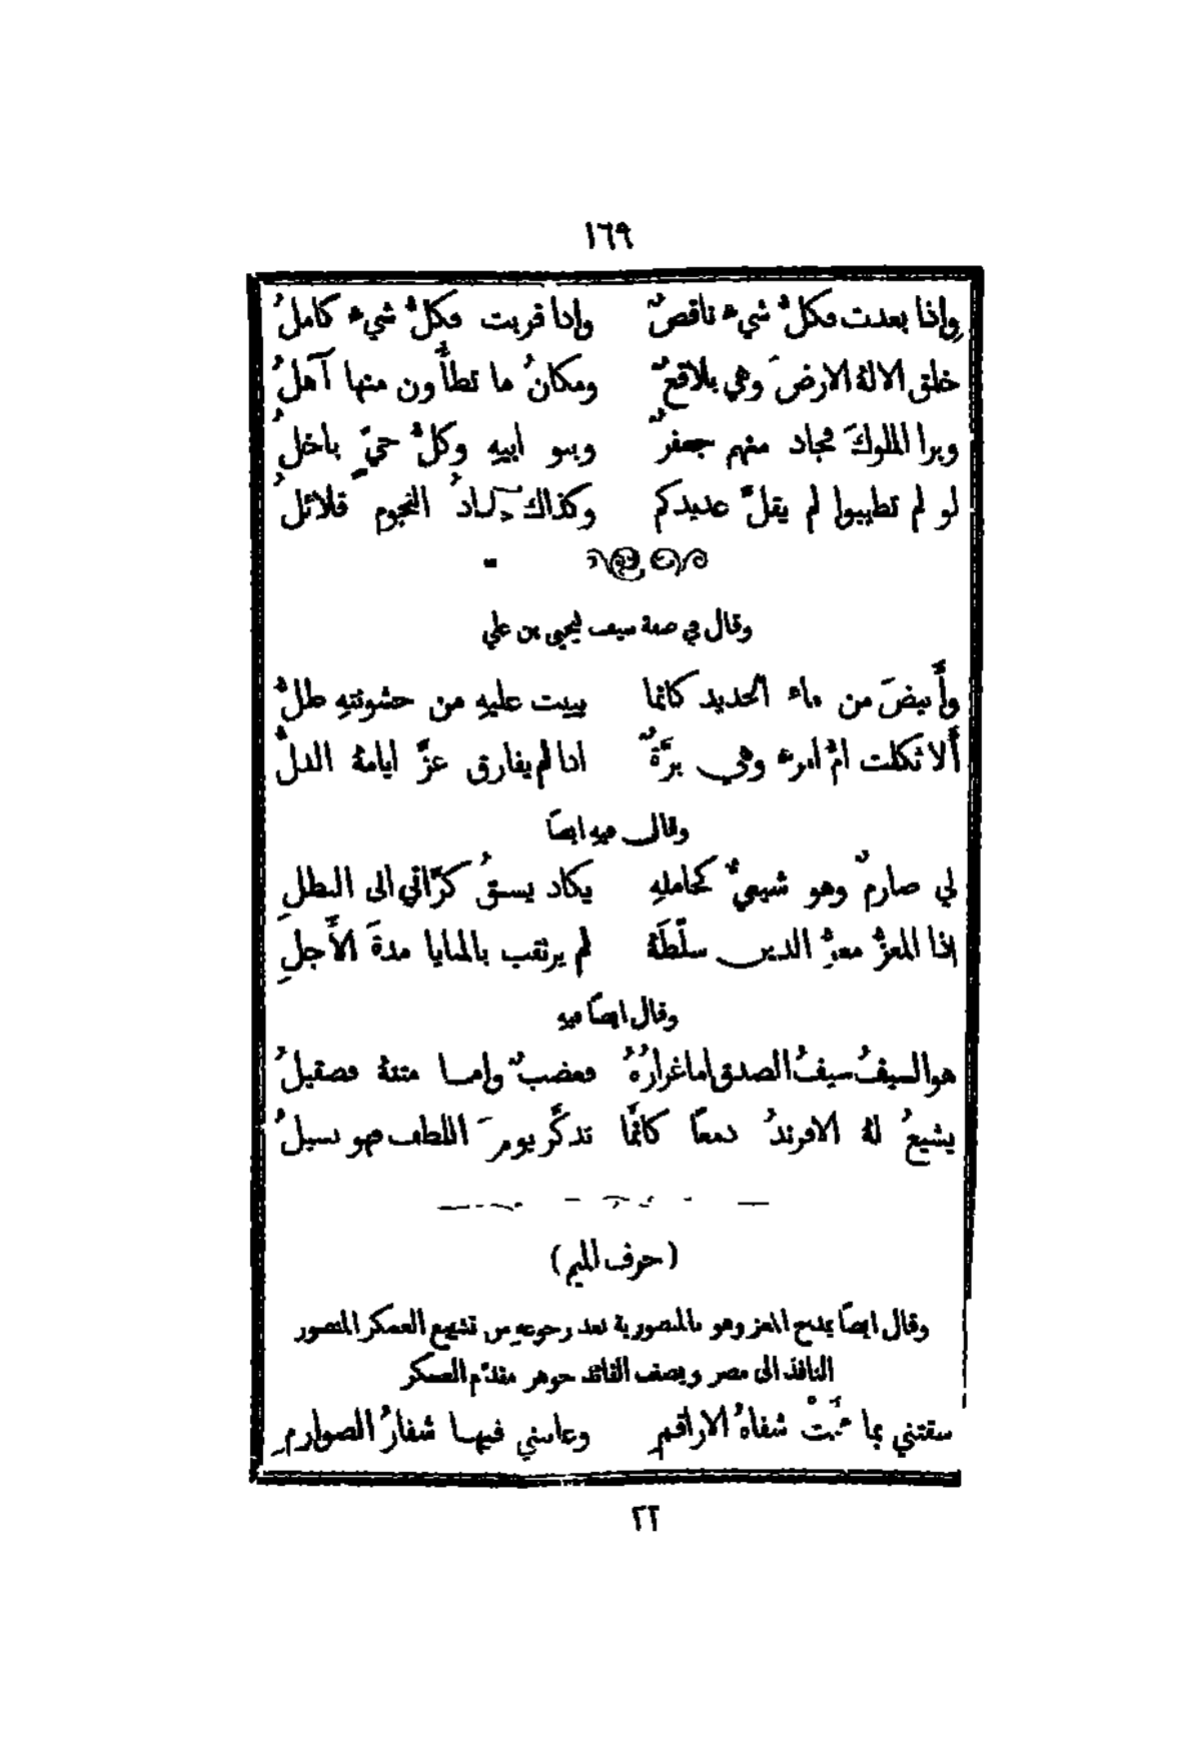 ١٦٩
وإذا بعدت فكلُّ شيءٍ ناقصٌ وإذا قربت فكلُّ شيءٍ كاملُ
خلق الالهُ الارضَ وهي بلاقعٌ ومكانُ ما تطأُون منها آهلُ
وبرا الملوكَ فجاد منهم جعفرٌ وبنو ابيهِ وكلُّ حيٍّ باخلُ
لو لم تطيبوا لم يقلَّ عديدكم وكذاك افرادُ النجوم قلائلُ
وقال في صفة سيف ليحيى بن علي
وأَبيضَ من ماء الحديد كانما يبيت عليهِ من خشونتهِ طلُّ
أَلا ثكلت امُّ امرءٍ وهي برَّةٌ اذا لم يفارق عزَّ ايامهُ الذلُّ
وقال فيه ايضًا
لي صارمٌ وهو شيعيٌّ كحاملهِ يكاد يسبقُ كرَّاتي الى البطلِ
اذا المعزُّ معزُّ الدين سلَّطَهُ لم يرتقب بالمنايا مدةَ الأَجلِ
وقال ايضًا فيهِ
هو السيفُ سيفُ الصدق اما غرارُهُ فعضبٌ وامـا متنهُ فصقيلُ
يشيعُ لهُ الافرندُ دمعًا كانَّما تذكَّر يومَ اللطف فهو يسيلُ
(حرف الميم)
وقال ايضًا يمدح المعز وهو بالمنصورية بعد رجوعهِ من تشييع العسكر المنصور
النافذ الى مصر ويصف القائد جوهر مقدَّم العسكر
سقتني بما مجَّتْ شفاهُ الاراقمِ وعاتبني فيهـا شفارُ الصوارمِ
٢٢